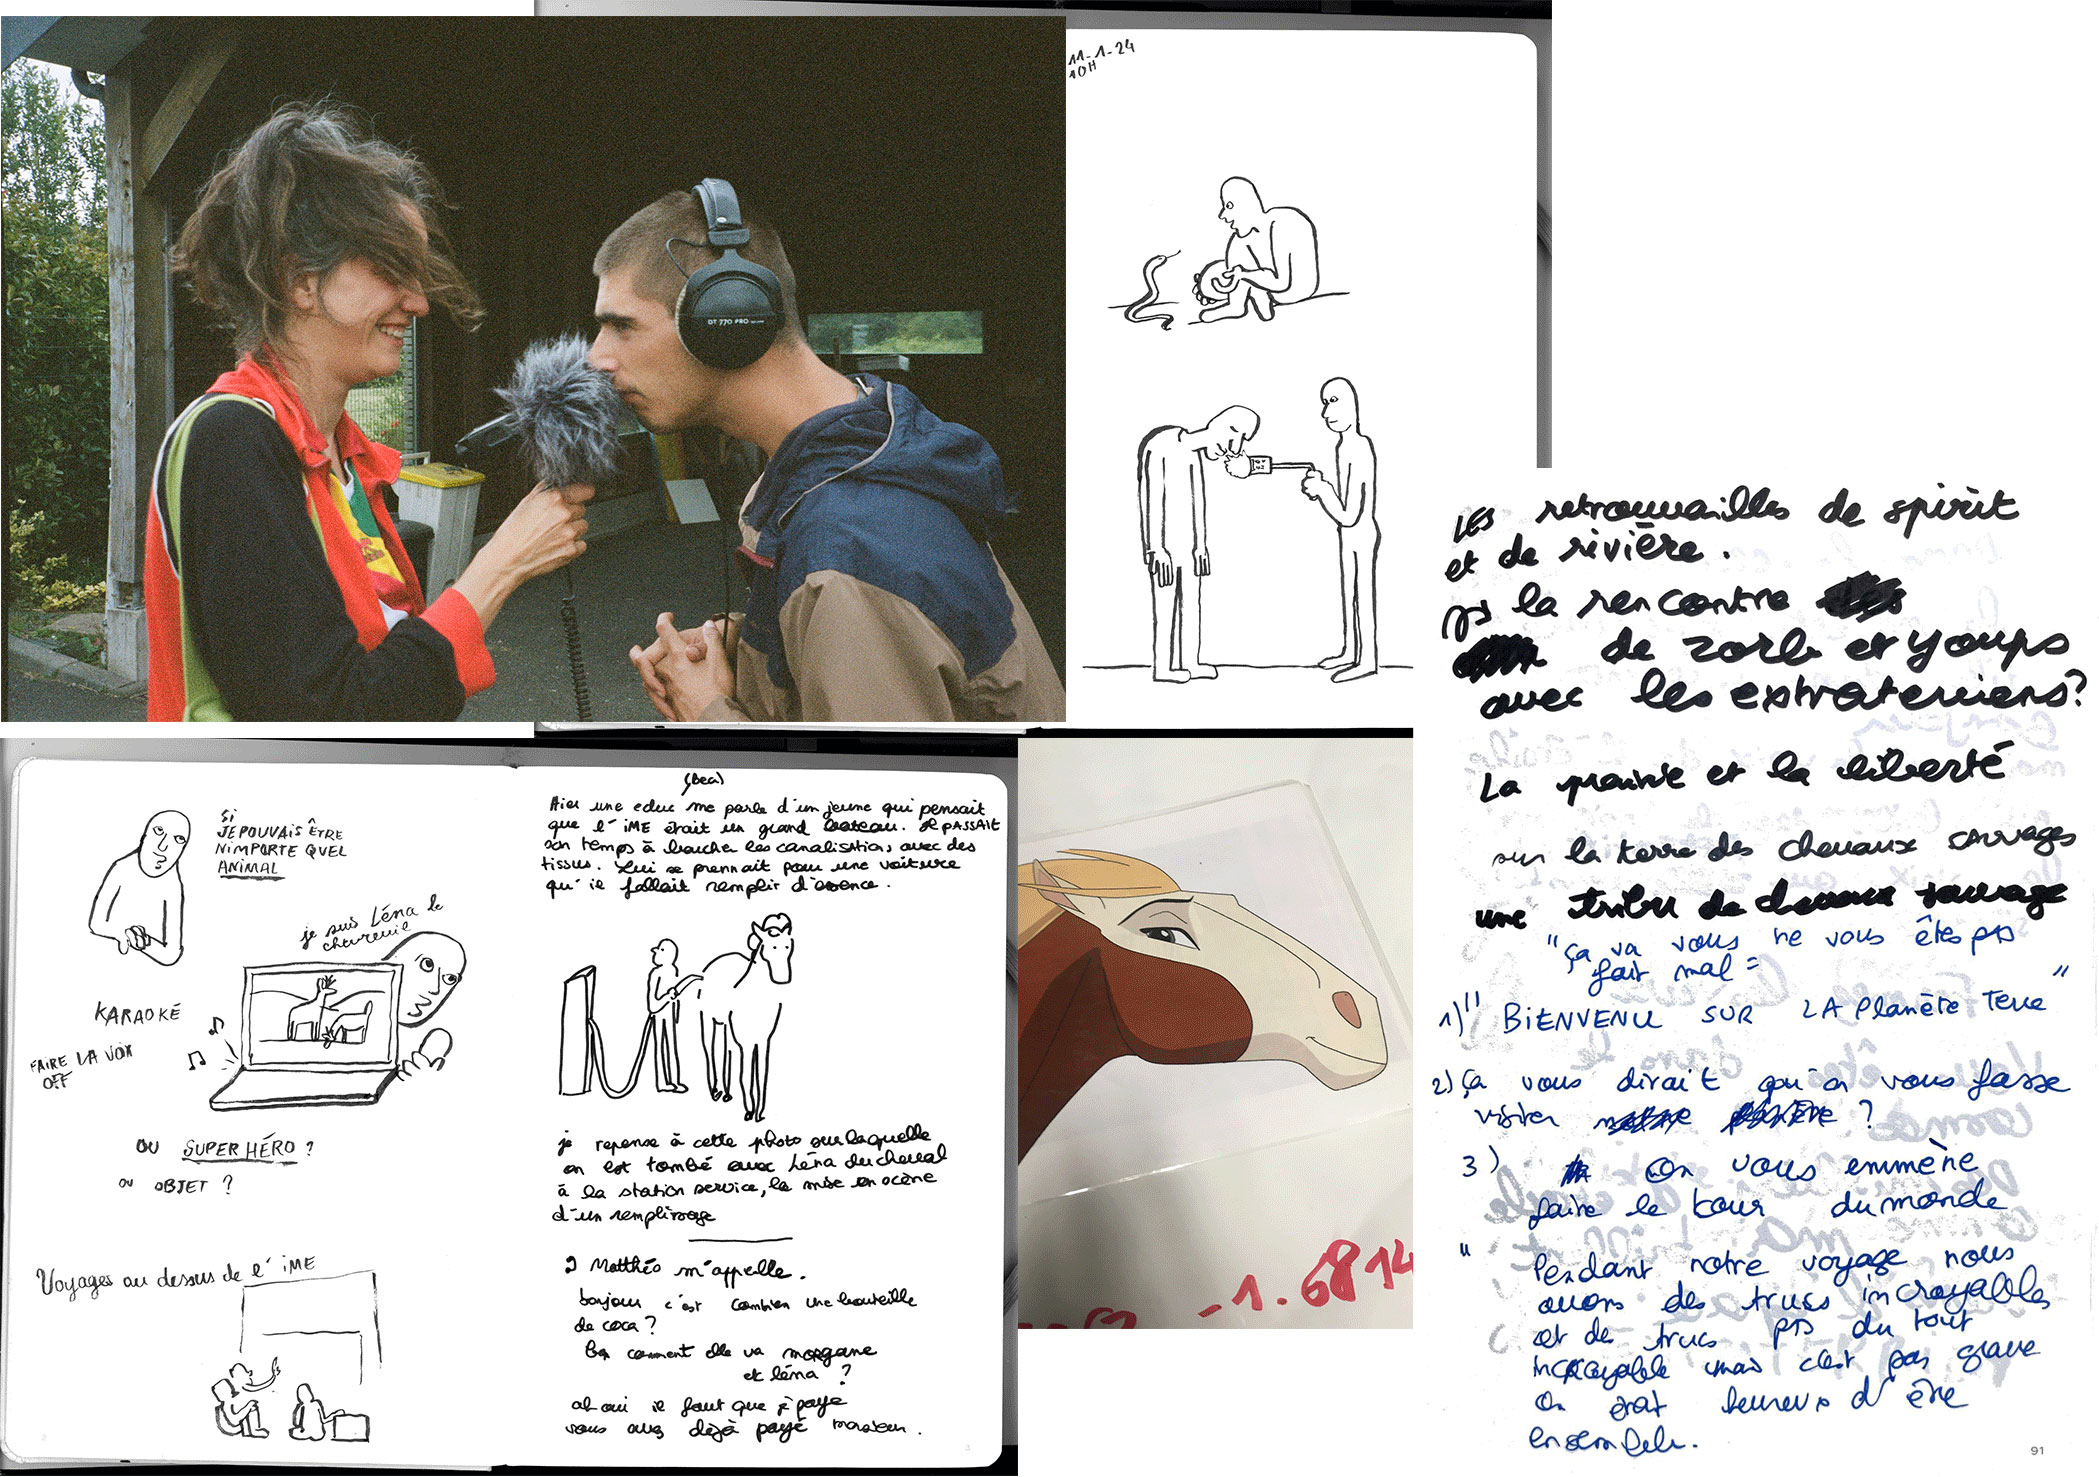 DT 770 PRO
11-1-24
10H
LES retrouvailles de spirit
et de rivière.
la rencontre
de zorb et youps
avec les extraterriens?
La prairie et la liberté
sur la terre des chevaux sauvages
une tribu de chevaux sauvage
"ça va vous ne vous êtes pas
fait mal="
1) "BiENVENU SUR LA Planète Terre"
2) ça vous dirait qu'on vous fasse
visiter ?
3) on vous emmène
faire le tour du monde
" Pendant notre voyage nous
avons des trucs incroyables
et de trucs pas du tout
incroyable mais c'est pas grave
on était heureux d'être
ensemble.
91
Si
JE POUVAIS ÊTRE
N'IMPORTE QUEL
ANIMAL
je suis Léna le
chevreuil
KARAOKÉ
FAIRE LA VOIX
OFF
OU SUPER HÉRO ?
OU OBJET ?
Voyages au dessus de l'iME
(Bea)
Hier une educ me parle d'un jeune qui pensait
que l'iME était un grand bateau. il PASSAIT
son temps à boucher les canalisations avec des
tissus. Lui se prennait pour une voiture
qu'il fallait remplir d'essence.
je repense à cette photo sur laquelle
on est tombé avec Léna du cheval
à la station service, la mise en scène
d'un remplissage
Matthéo m'appelle.
bonjour c'est combien une bouteille
de coca ?
Bon comment elle va morgane
et léna ?
ah oui il faut que je paye
vous avez déjà payé monsieur.
-1.6814